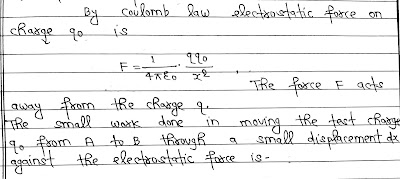 By coulomb law electrostatic force on
charge q0 is
F = 1/4πε0 . qq0/x²
The force F acts
away from the charge q.
The small work done in moving the test charge
q0 from A to B through a small displacement dx
against the electrostatic force is-